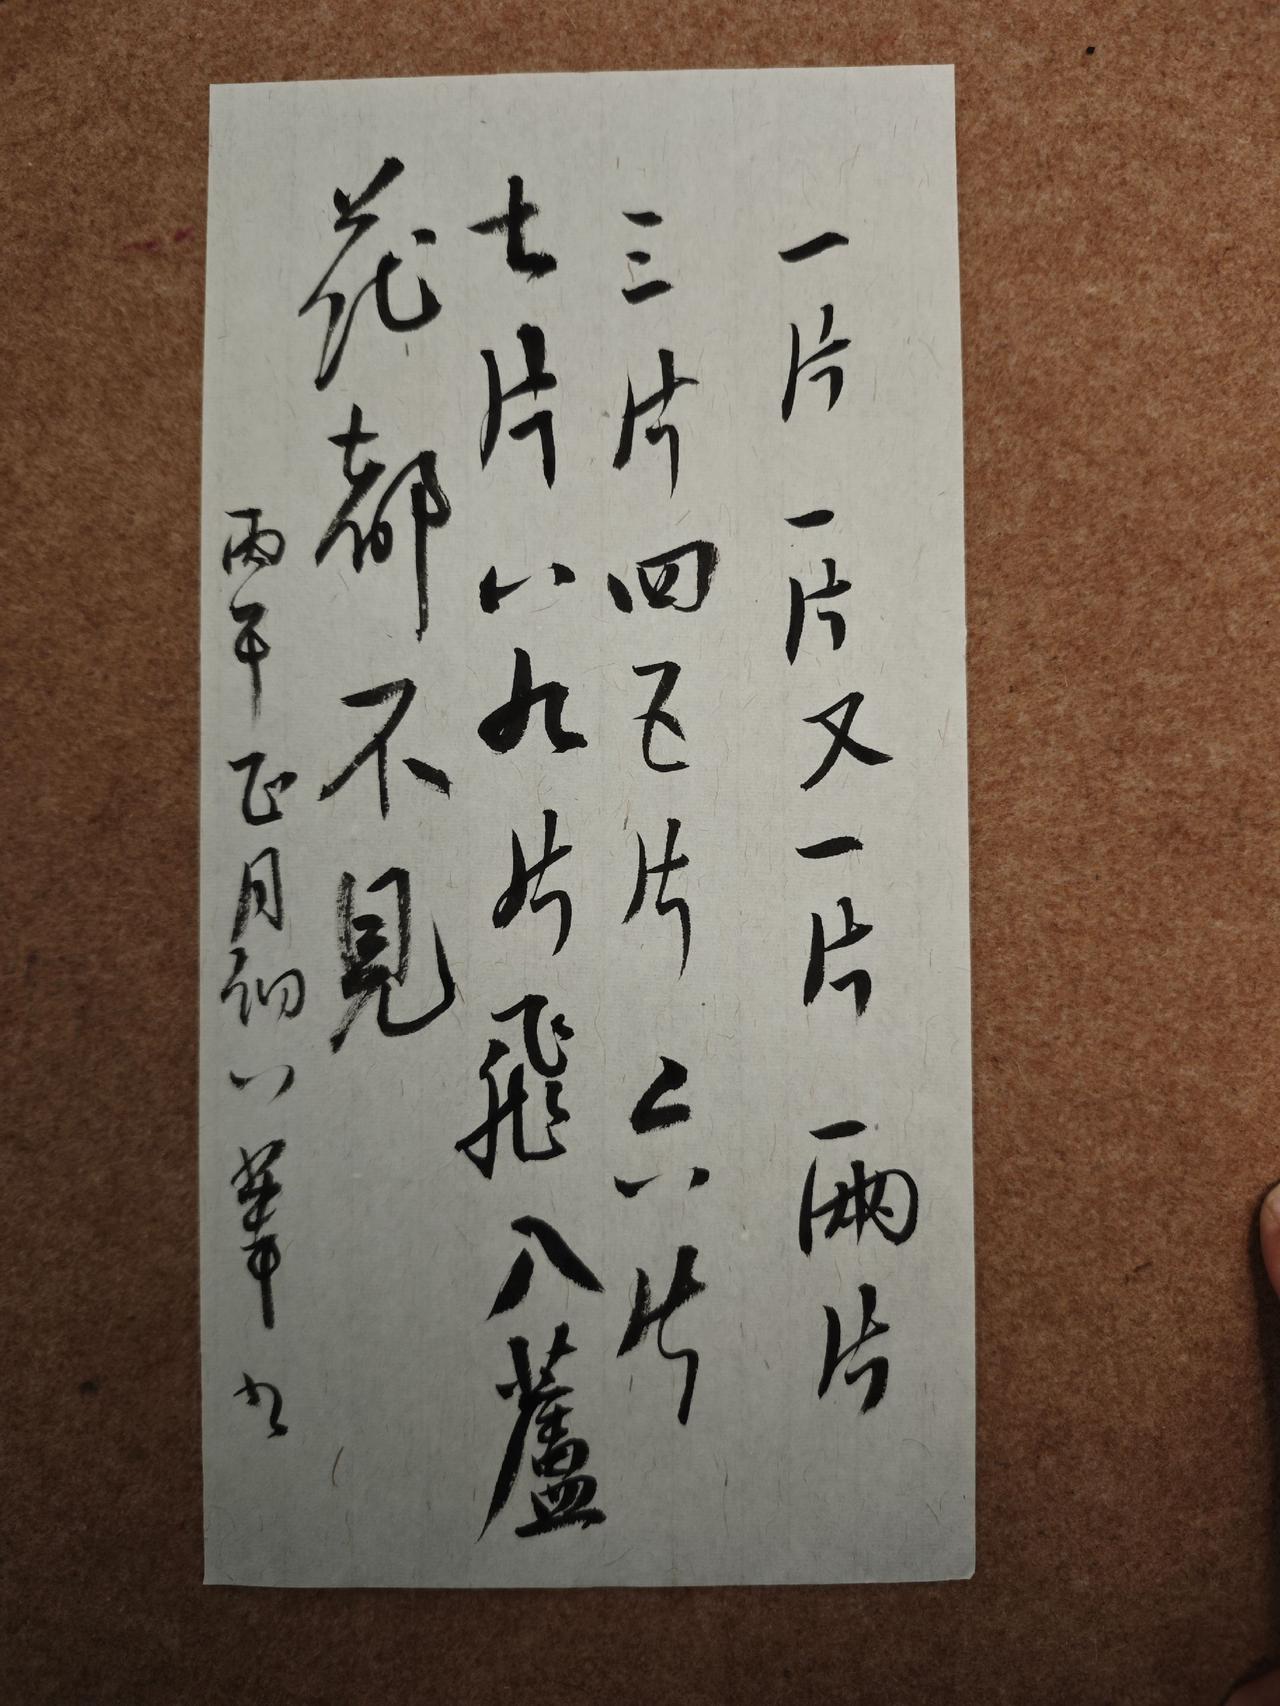 一片一片又一片兩片
三片四五片六片
七片八九片飛入蘆
花都不見
丙午正月初八 书